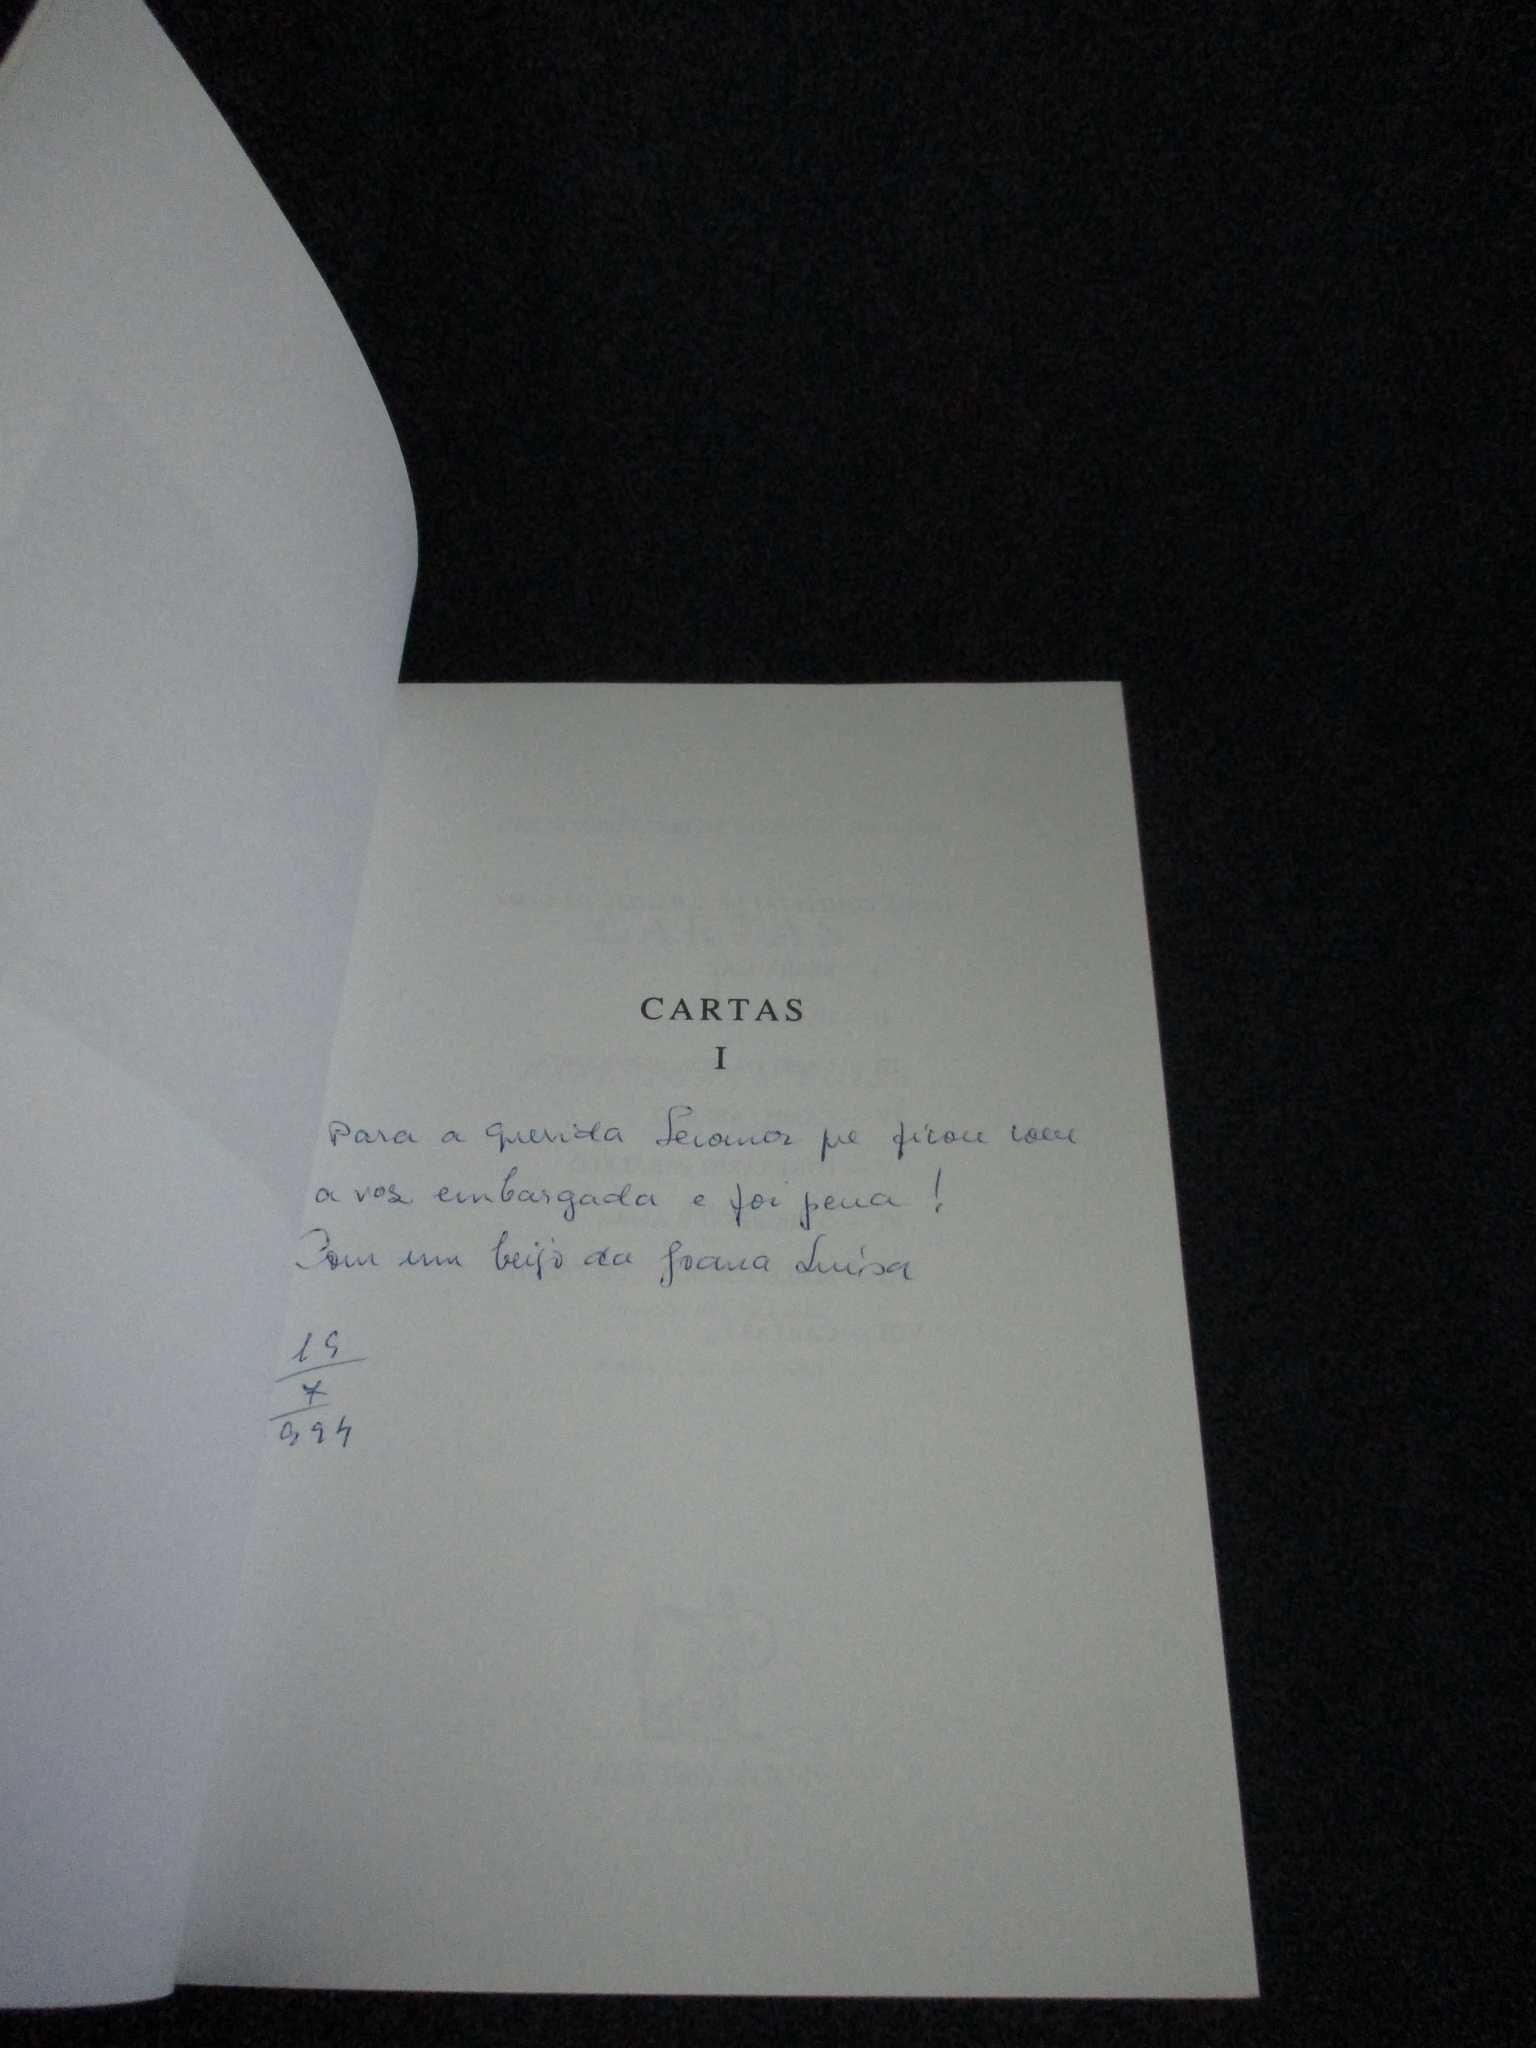 CARTAS
I
Para a querida Leonor que ficou com
a voz embargada e foi pena!
Com um beijo da Joana Luísa
19
7
994